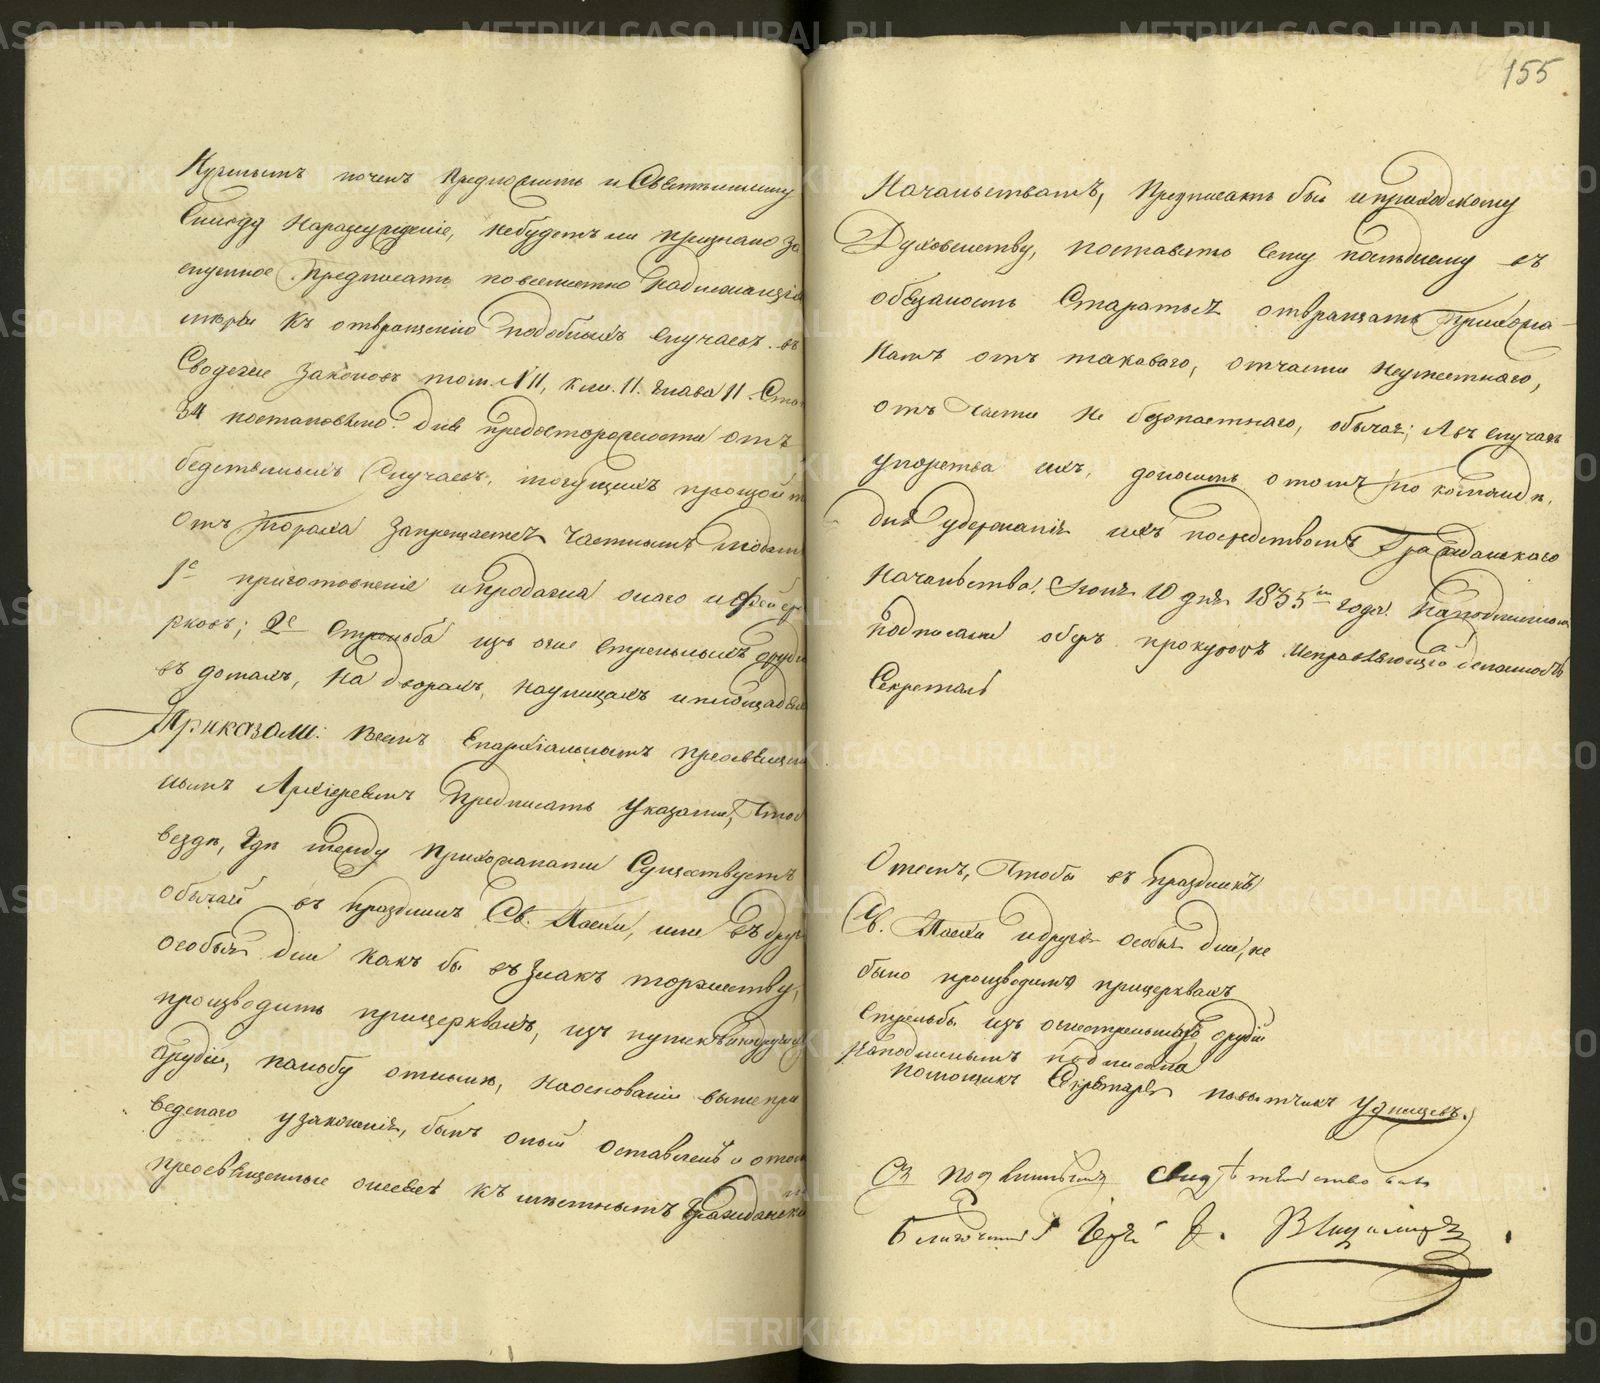 Нужнымъ почелъ предложить и Святѣйшему
Синоду на разсужденіе, не будетъ ли признано за
нужное предписать повсеместно надлежащія
мѣры къ отвращенію подобныхъ случаевъ. въ
Своде же законовъ том.
34 постановлено: для предосторожности отъ
бедственныхъ случаевъ, могущихъ произойти
отъ пороха запрещается частнымъ людямъ
1е приготовленіе и продажа онаго и фейер
рковъ; 2е стрельба изъ огнестрельныхъ орудій
въ домахъ, на дворахъ, на улицахъ и площадяхъ
Приказали: Всемъ Епархіальнымъ преосвящен
нымъ Архіереямъ предписать указами, чтоб
везде, где между прихожанами существуетъ
обычай въ праздникъ Св. Пасхи, или въ другія
особыя дни какъ бы въ знакъ торжества,
производить при церквахъ, изъ пушекъ и другихъ
орудій, пальбу отныне, на основаніи выше при
веденаго узаконенія, былъ оный оставленъ о томъ
преосвященные снесясь къ местнымъ Гражданским
155
Начальствамъ, предписали бы и приходскому
Духовенству, поставить сему последнему въ
обязаность стараться отвращать прихожа-
намъ отъ таковаго, отчасти неуместнаго,
отъ части не безопастнаго, обычая; а въ случае
упорства ихъ, доносить о томъ по команде,
для удержанія ихъ посредствомъ Гражданскаго
начальства. Іюня 10 дня 1835го года. На подлинном
подписали обер прокуроръ Исправляющій должность
Секретарь
О темъ, чтобы въ праздникъ
Св. Пасхи и другія особыя дни, не
было производимо при церквахъ
стрельбы изъ огнестрельныхъ орудій
На подлинномъ подписалъ
помощникъ Секретаря повытчикъ
Съ подлиннымъ свидѣтельствовалъ
Благочинный Іерей